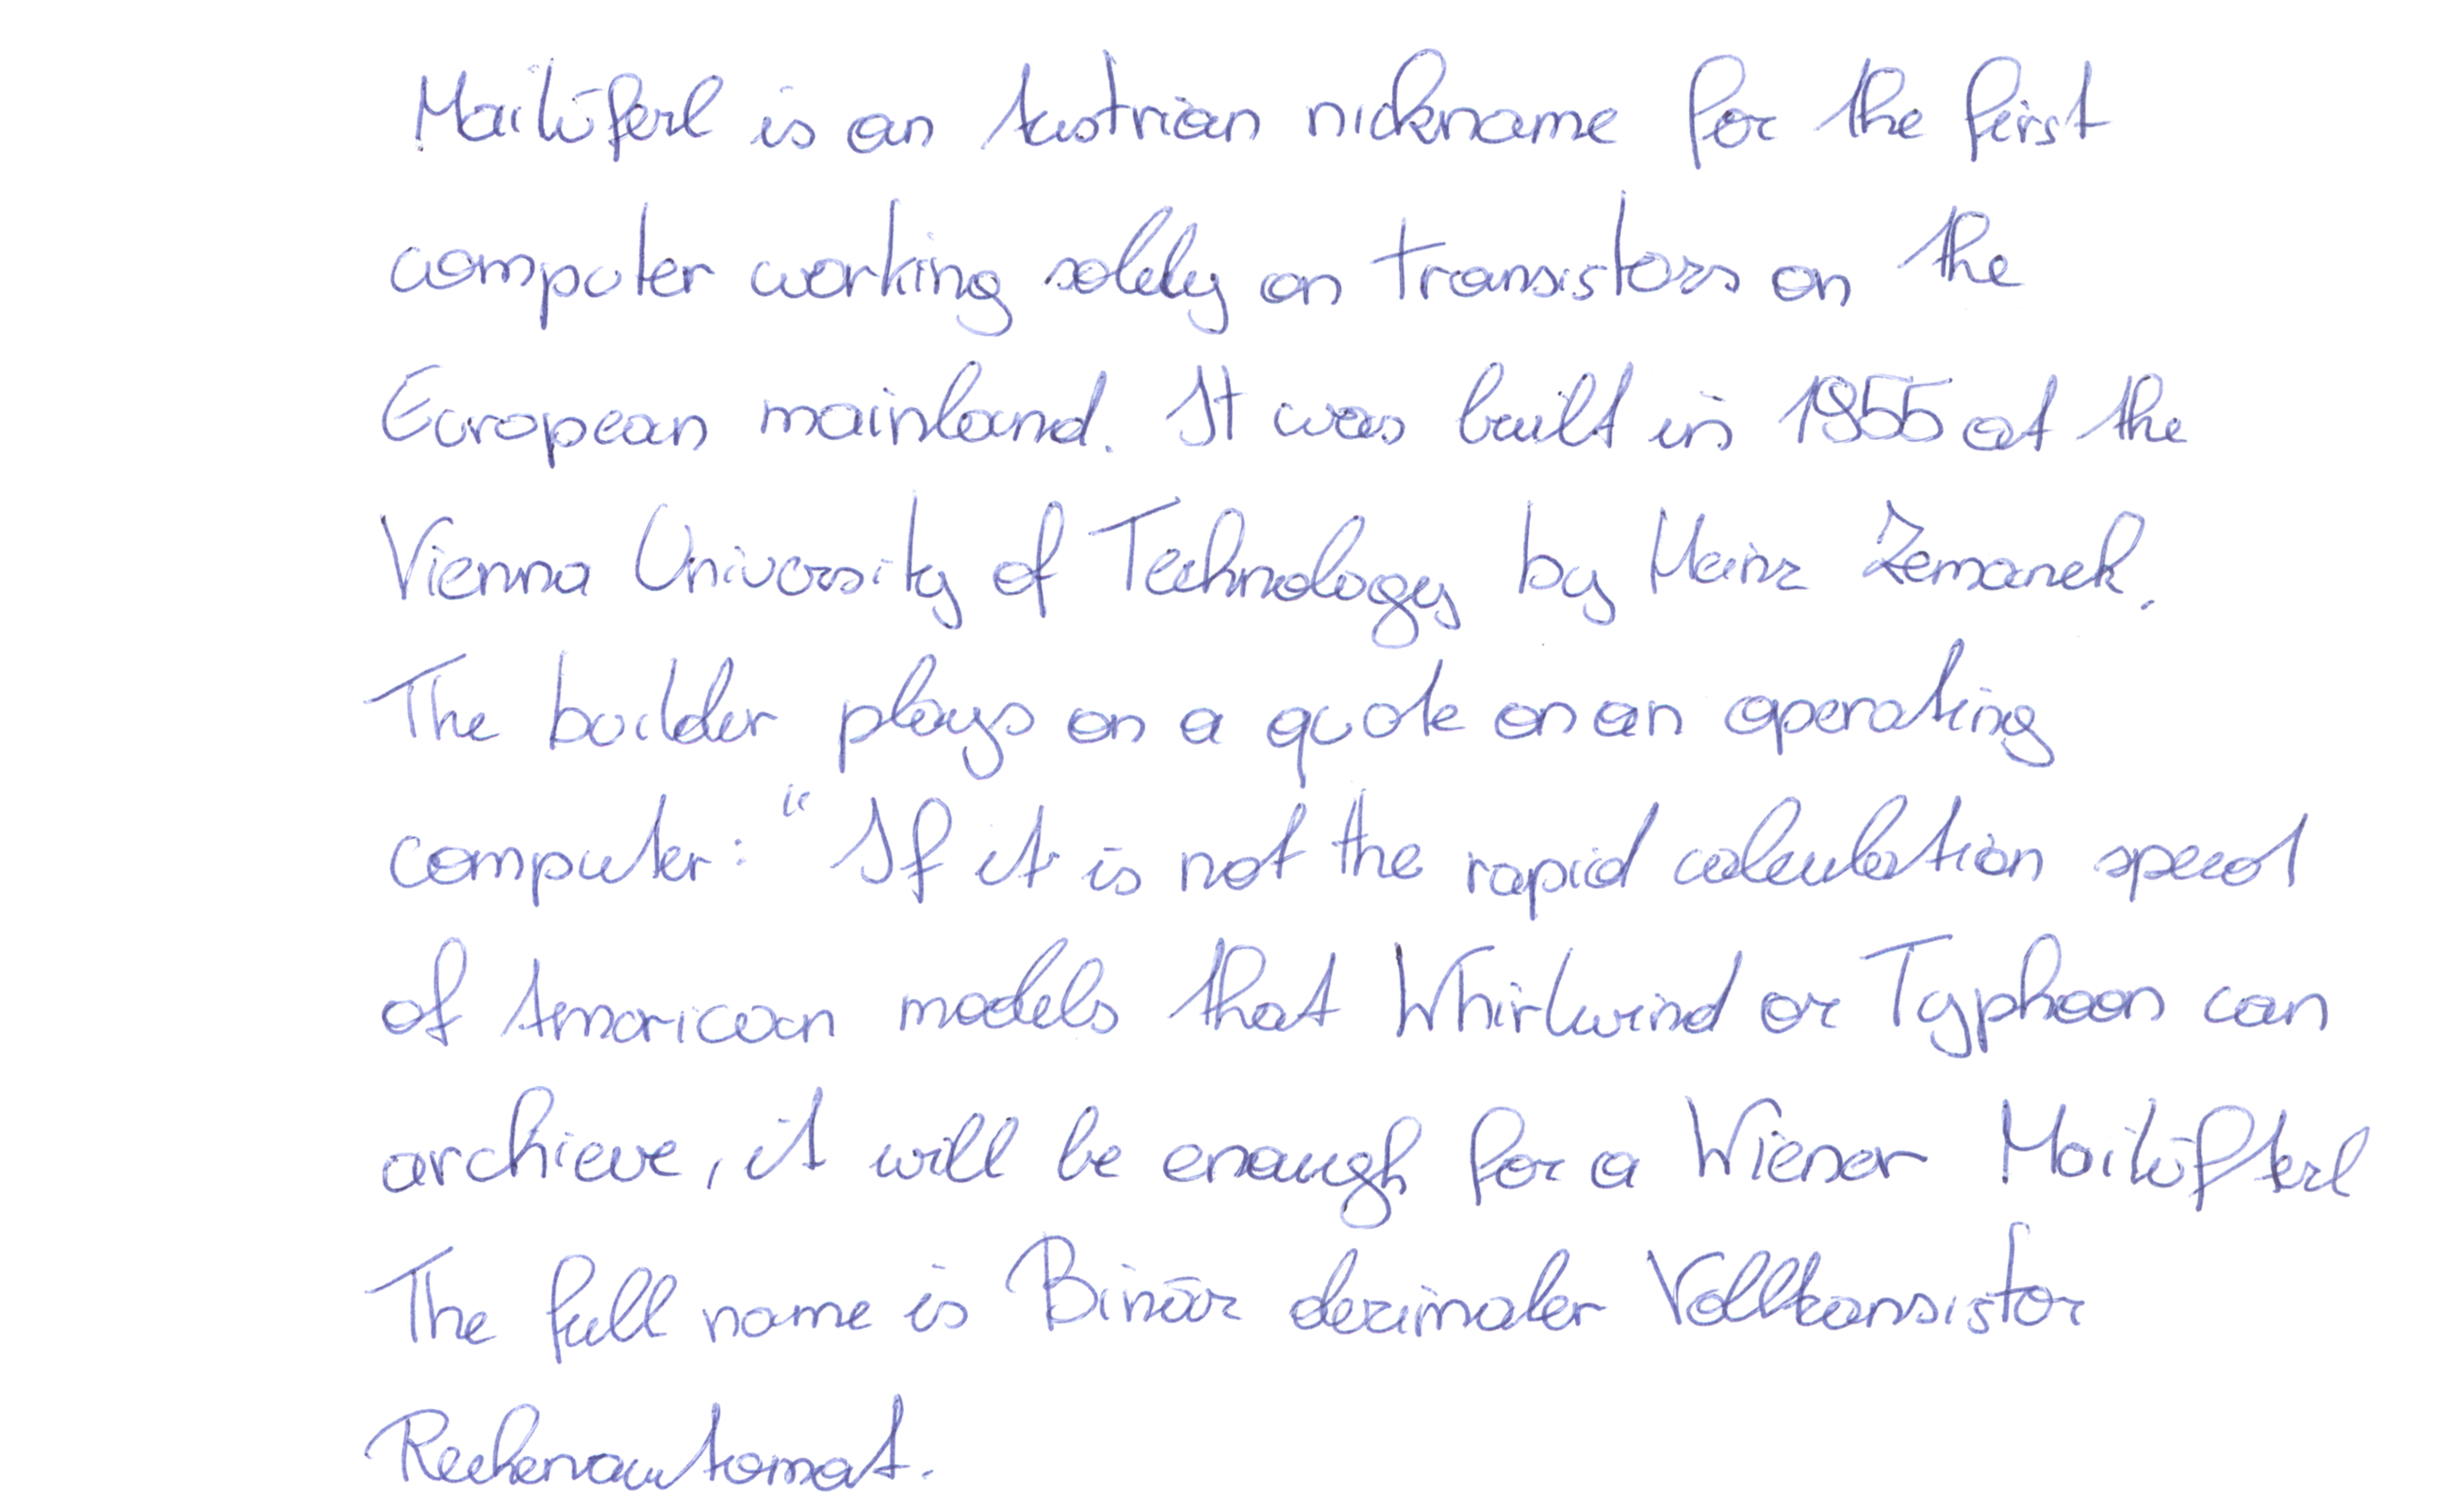 Mailüferl is an Austrian nickname for the first
computer working solely on transistors on the
European mainland. It was built in 1955 at the
Vienna University of Technology by Heinz Zemanek.
The builder plays on a quote on an operating
computer: "If it is not the rapid calculation speed
of American models that Whirlwind or Typhoon can
archieve, it will be enough for a Wiener Mailüfterl
The full name is Binär dezimaler Volltransistor
Rechenautomat.